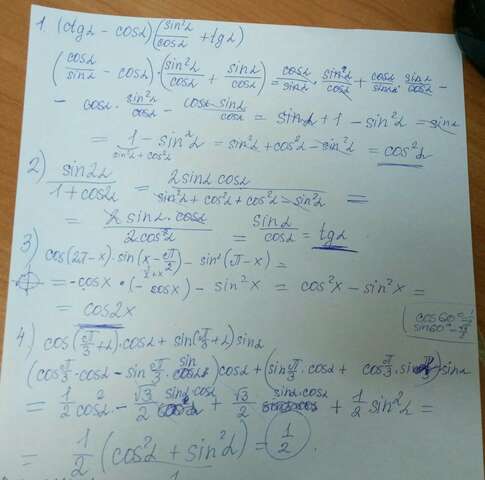 1. (ctgα - cosα)(sin²α/cosα + tgα)
(cosα/sinα - cosα)·(sin²α/cosα + sinα/cosα) = cosα/sinα · sin²α/cosα + cosα/sinα · sinα/cosα -
- cosα · sin²α/cosα - cosα · sinα/cosα = sinα + 1 - sin²α - sinα
= 1 - sin²α = sin²α + cos²α - sin²α = cos²α
sin²α + cos²α
2) sin2α/1+cos2α = 2sinα cosα/sin²α + cos²α + cos²α - sin²α =
= 2sinα·cosα/2cos²α = sinα/cosα = tgα
3) cos(2π-x)·sin(x-π/2) - sin²(π-x) =
= -cosx·(-cosx) - sin²x = cos²x - sin²x =
= cos2x
cos60°=1/2
sin60°=
4.) cos(π/3+α)·cosα + sin(π/3+α)sinα
(cosπ/3·cosα - sinπ/3·sinα)cosα + (sinπ/3·cosα + cosπ/3·sinα)sinα
= 1/2 cos²α - √3/2 sinα·cosα + √3/2 sinα·cosα + 1/2 sin²α =
= 1/2 (cos²α + sin²α) = 1/2.